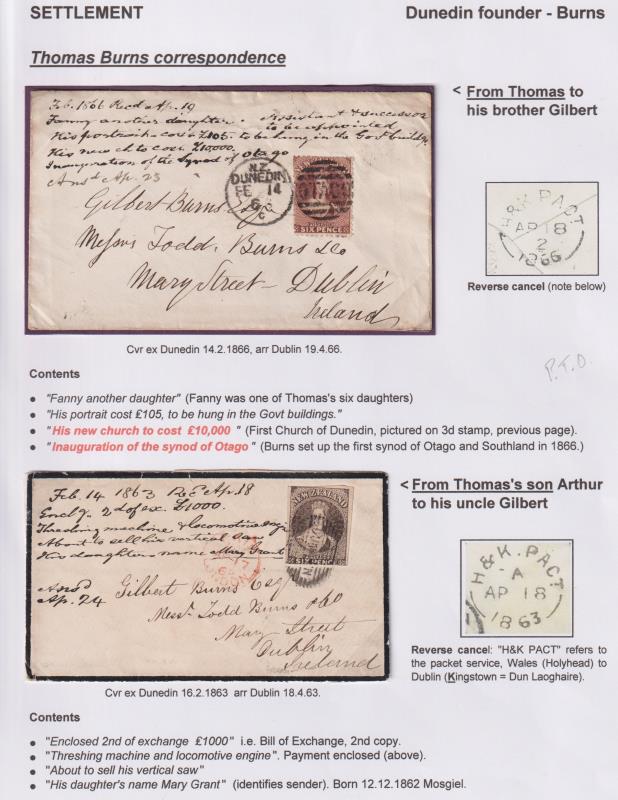 SETTLEMENT
Dunedin founder - Burns
Thomas Burns correspondence
< From Thomas to
his brother Gilbert
Feb. 1866 Recd Ap. 19
Fanny another daughter. Assistant & successor
to be appointed
His portrait cost £105. to be hung in the Govt buildgs.
His new ch to cost £10,000
Inauguration of the Synod of Otago
Ansd Ap. 23
N.Z.
DUNEDIN
FE 14
6
C
OTAGO
SIX PENCE
Gilbert Burns Esqr
Messrs Todd, Burns & Co
Mary Street - Dublin
Ireland
H&K. PACT
AP 18
2
1866
Reverse cancel (note below)
Cvr ex Dunedin 14.2.1866, arr Dublin 19.4.66.
P.T.O.
Contents
• "Fanny another daughter" (Fanny was one of Thomas's six daughters)
• "His portrait cost £105, to be hung in the Govt buildings."
• "His new church to cost £10,000" (First Church of Dunedin, pictured on 3d stamp, previous page).
• "Inauguration of the synod of Otago" (Burns set up the first synod of Otago and Southland in 1866.)
< From Thomas's son Arthur
to his uncle Gilbert
Feb. 14 1863 Recd Ap. 18
Enclg. 2d of ex. £1000.
Threshing machine & locomotive engi
About to sell his vertical saw
His daughter's name Mary Grant
Ansd
Ap. 24
NEW ZEALAND
SIX PENCE
LONDON
Gilbert Burns Esq
Messrs Todd Burns & Co
Mary Street
Dublin
Ireland
H&K. PACT
A
AP 18
1863
Reverse cancel: "H&K PACT" refers
to the packet service, Wales (Holyhead) to
Dublin (Kingstown = Dun Laoghaire).
Cvr ex Dunedin 16.2.1863 arr Dublin 18.4.63.
Contents
• "Enclosed 2nd of exchange £1000" i.e. Bill of Exchange, 2nd copy.
• "Threshing machine and locomotive engine". Payment enclosed (above).
• "About to sell his vertical saw"
• "His daughter's name Mary Grant" (identifies sender). Born 12.12.1862 Mosgiel.